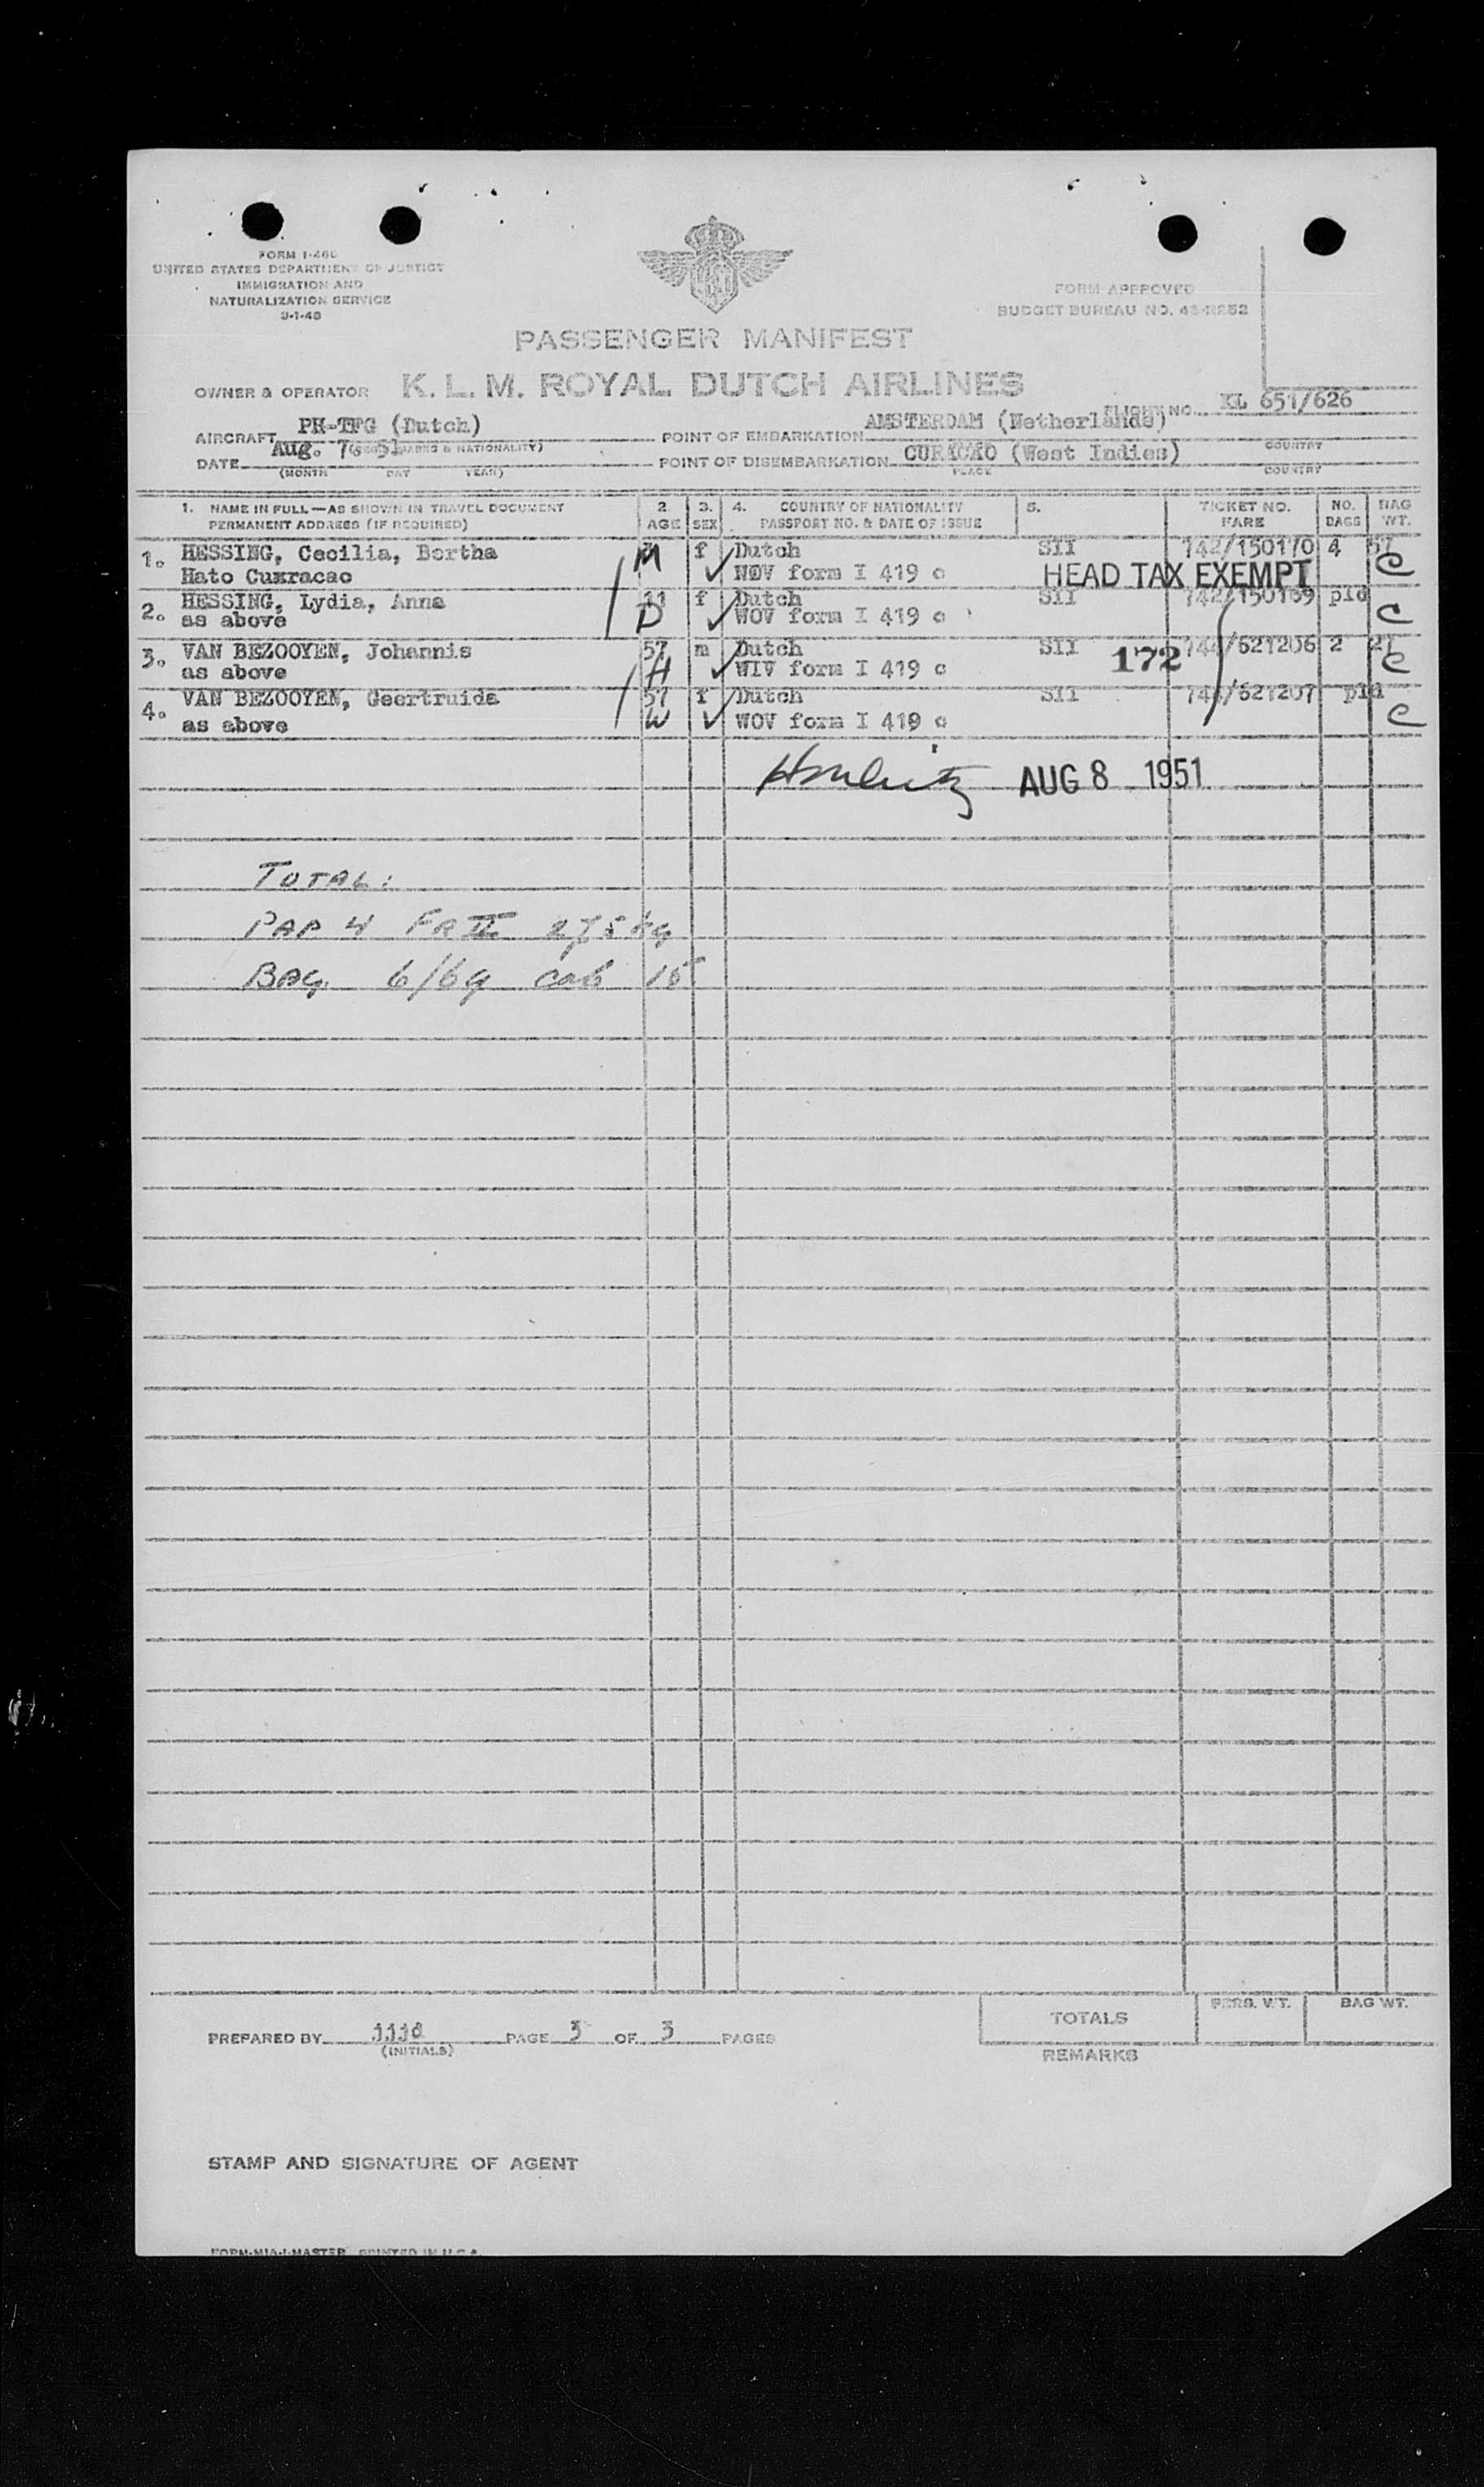 FORM I-466
UNITED STATES DEPARTMENT OF JUSTICE
IMMIGRATION AND
NATURALIZATION SERVICE
FORM APPROVED
BUDGET BUREAU NO.
PASSENGER MANIFEST
OWNER & OPERATOR K. L. M. ROYAL DUTCH AIRLINES
FLIGHT NO. KL 651/626
AIRCRAFT PH-TFG (Dutch) POINT OF EMBARKATION AMSTERDAM (Netherlands)
(REG. MARKS & NATIONALITY) COUNTRY
DATE Aug. 7 51 POINT OF DISEMBARKATION CURACAO (West Indies)
(MONTH DAY YEAR) PLACE COUNTRY
1. NAME IN FULL—AS SHOWN IN TRAVEL DOCUMENT 2. 3. 4. COUNTRY OF NATIONALITY 5. TICKET NO. NO. BAG
PERMANENT ADDRESS (IF REQUIRED) AGE SEX PASSPORT NO. & DATE OF ISSUE FARE BAGS WT.
1. HESSING, Cecilia, Bertha M f Dutch SII 742/150170 4 57
Hato Cuxracao form I 419 c HEAD TAX EXEMPT C
2. HESSING, Lydia, Anna 11 f Dutch SII 742/150169 pld
as above D WOV form I 419 c C
3. VAN BEZOOYEN, Johannis 57 m Dutch SII /621206 2 21
as above H WIV form I 419 c 172 C
4. VAN BEZOOYEN, Geertruida 57 f Dutch SII /621207 pld
as above W WOV form I 419 c C
AUG 8 1951
TOTAL:
PAP 4 FR II 275 kg
BAG. 6/69 cab 15
PREPARED BY PAGE 3 OF 3 PAGES
(INITIALS)
TOTALS PERS. WT. BAG WT.
REMARKS
STAMP AND SIGNATURE OF AGENT
FORM-MIA-I-MASTER PRINTED IN U.S.A.